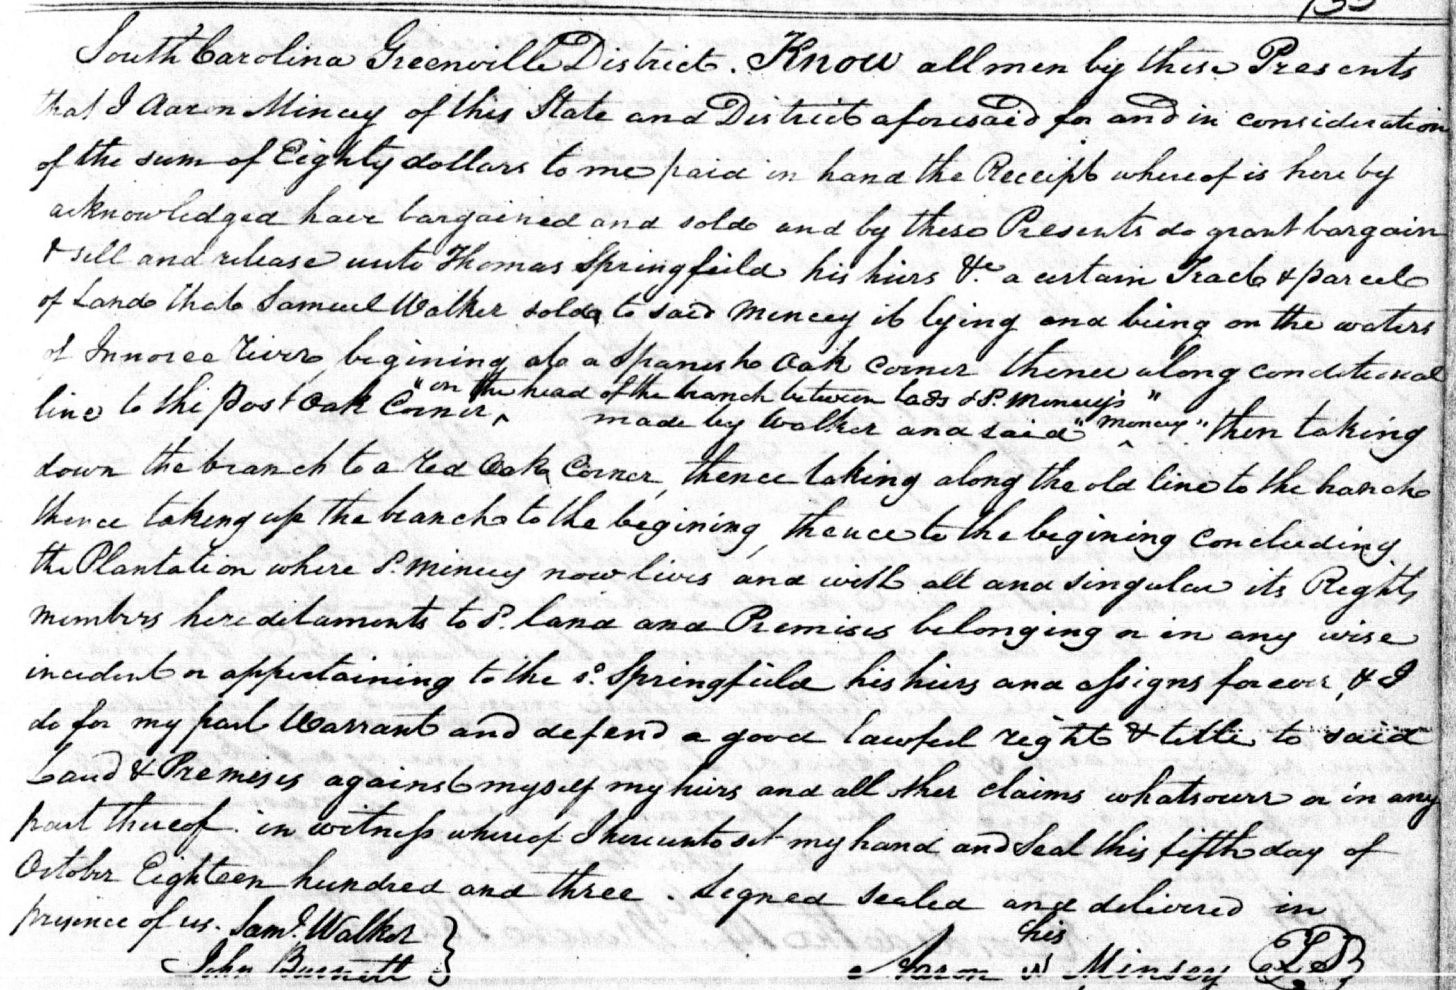 South Carolina Greenville District. Know all men by these Presents
that I Aaron Mincey of this State and District aforesaid for and in consideration
of the sum of Eighty dollars to me paid in hand the Receipt whereof is here by
acknowledged have bargained and sold and by these Presents do grant bargain
& sell and release unto Thomas Springfeild his hiers &c a certain Tract & parcel
of Land that Samuel Walker sold to said Mincey it lying and being on the waters
of Innoree River begining at a Spanish Oak corner thence along conditional
"on the head of the branch between Lads & Sd. Mincey's"
line to the post Oak Corner, ‸ made by Walker and said "Mincey" then taking
down the branch to a red Oak Corner, thence taking along the old line to the branch
thence taking up the branch to the begining, thence to the begining concluding
the Plantation where Sd. Mincey now lives and with all and singular its Rights
members hereditaments to Sd. Land and Premises belonging or in any wise
incident or appertaining to the sd. Springfield his hiers and assigns forever, & I
do for my part Warrant and defend a good lawful right & title to said
Land & Premises against myself my hiers and all other claims whatsoever or in any
part thereof. in witness whereof I hereunto set my hand and Seal this fifth day of
October Eighteen hundred and three. Signed sealed and delivered in
presence of us. Saml. Walker
his
John Barrett } Aaron Minsey LS